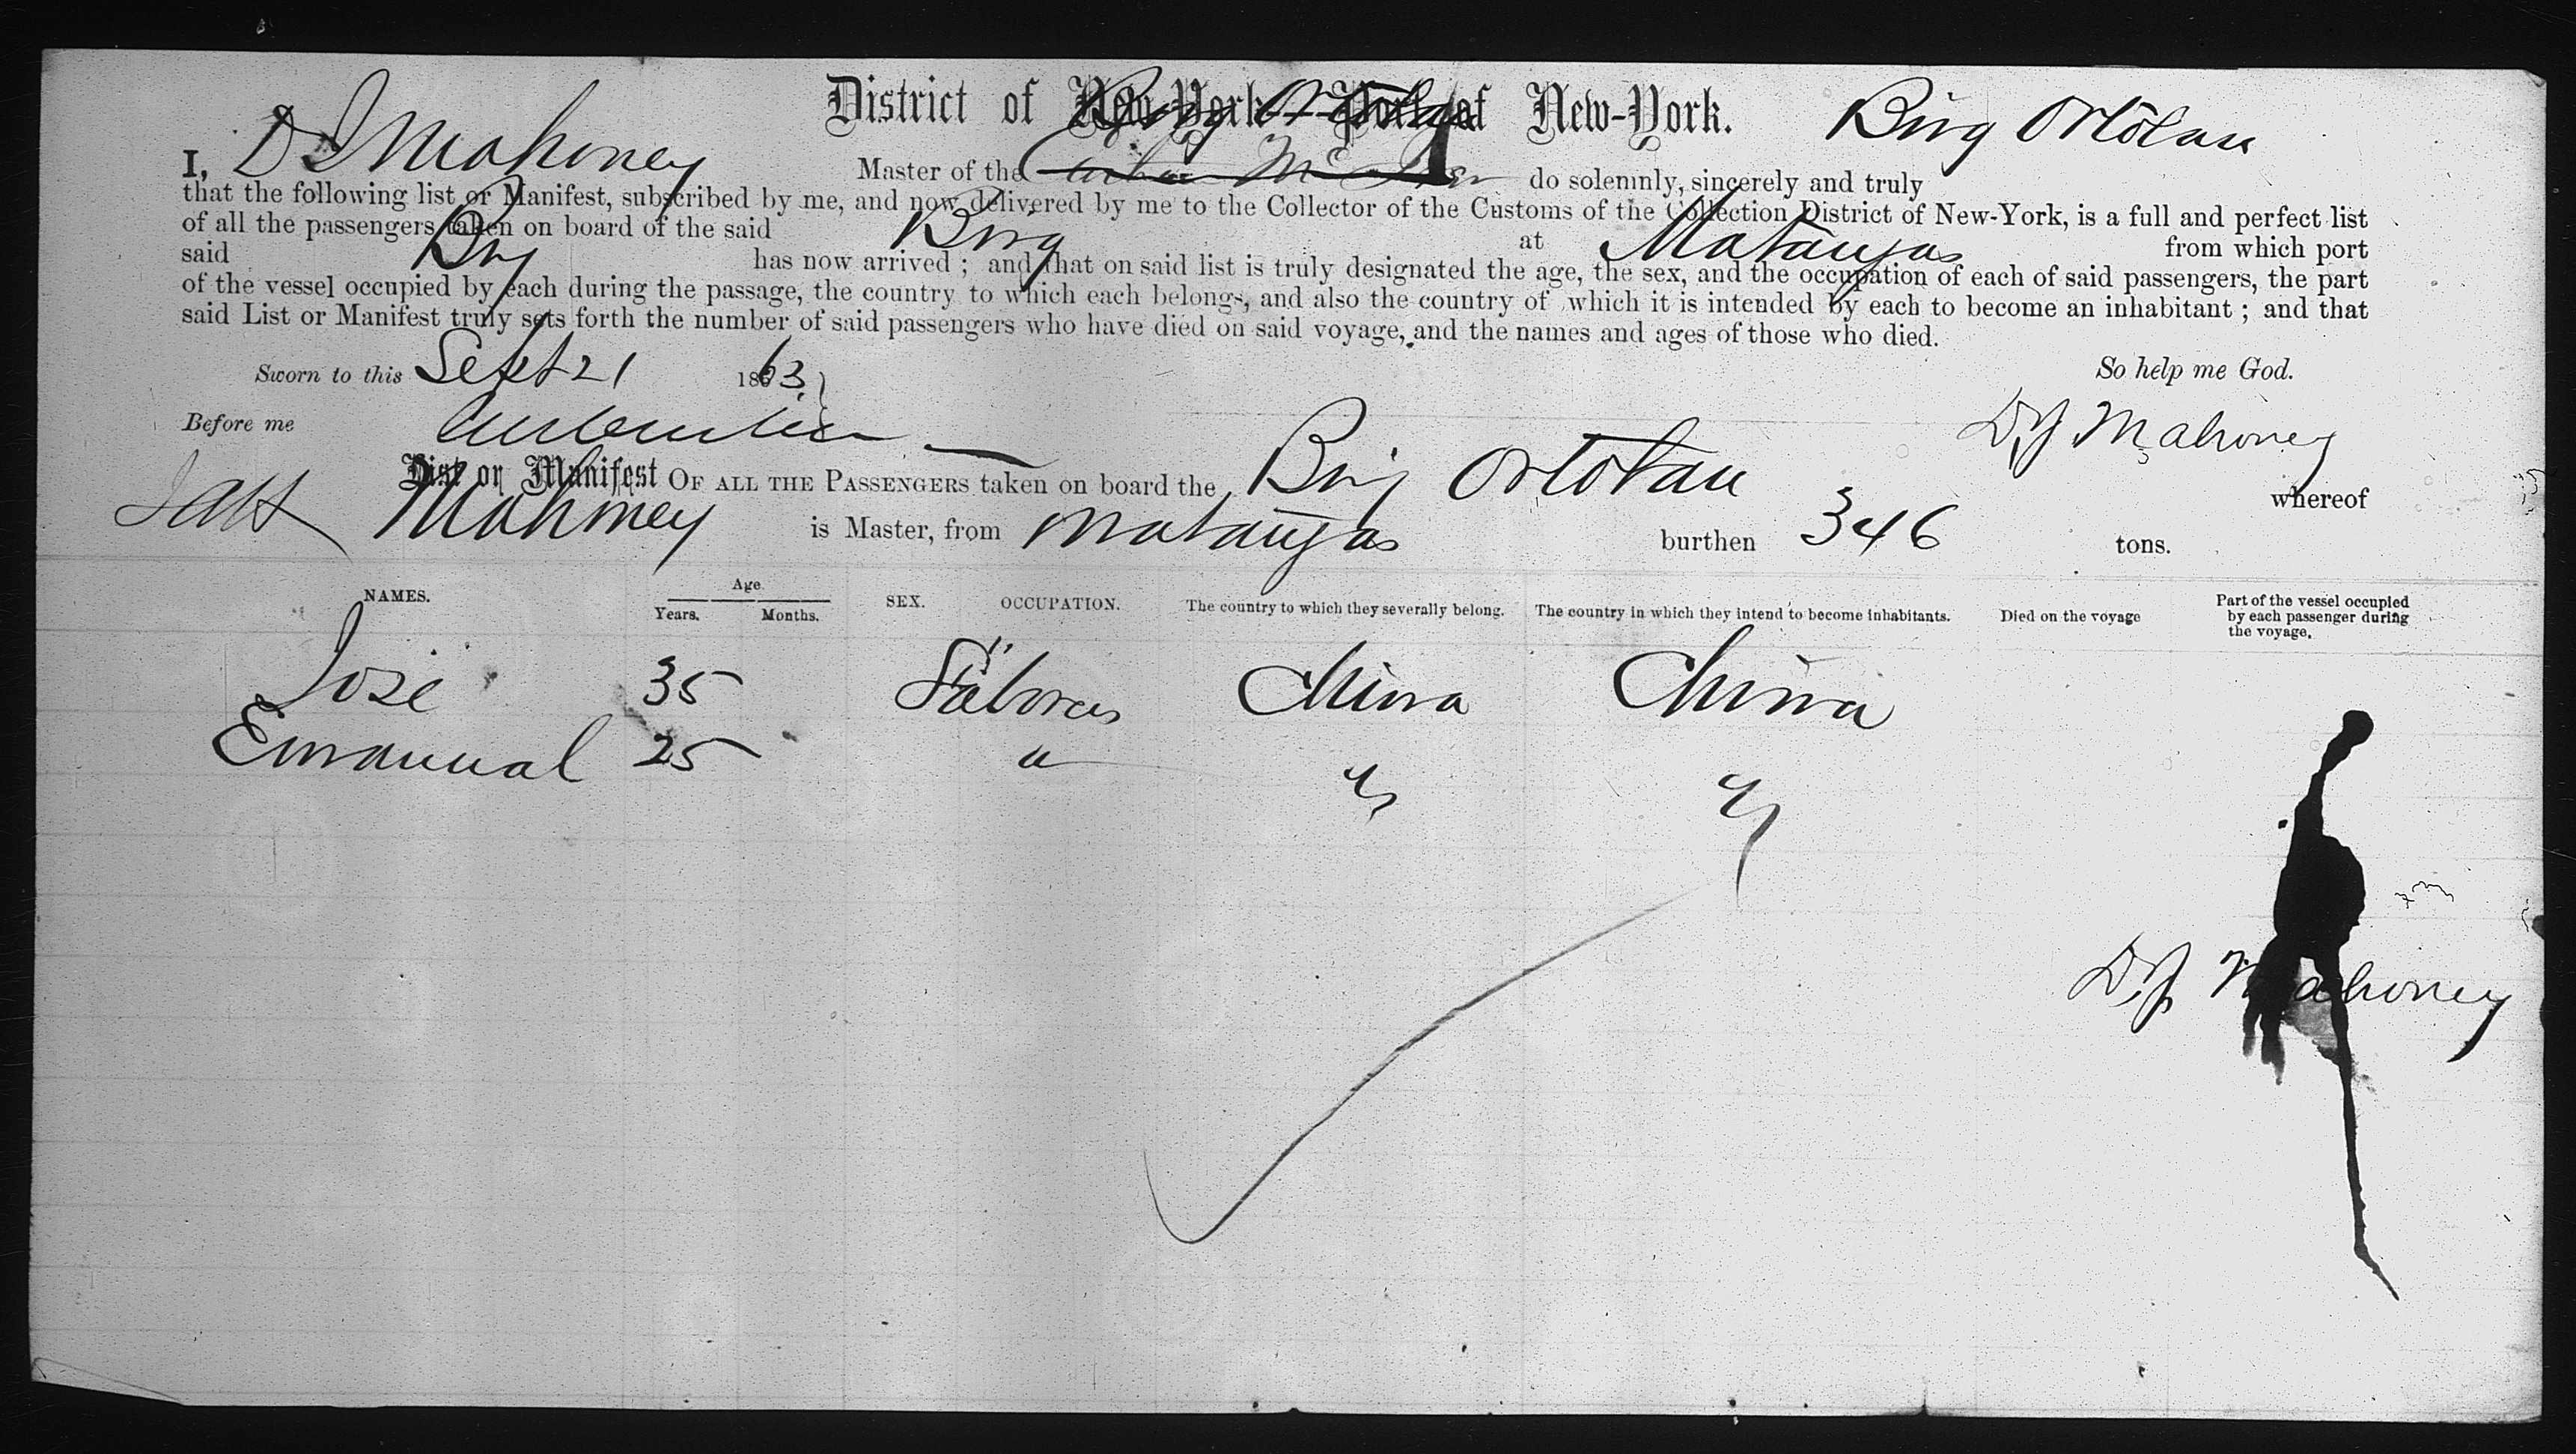 District of New-York—Port of New-York. Brig Ortolan
I, D J Mahoney Master of the do solemnly, sincerely and truly
that the following list or Manifest, subscribed by me, and now delivered by me to the Collector of the Customs of the Collection District of New-York, is a full and perfect list
of all the passengers taken on board of the said Brig at Matanzas from which port
said Brig has now arrived; and that on said list is truly designated the age, the sex, and the occupation of each of said passengers, the part
of the vessel occupied by each during the passage, the country to which each belongs, and also the country of which it is intended by each to become an inhabitant; and that
said List or Manifest truly sets forth the number of said passengers who have died on said voyage, and the names and ages of those who died.
Sworn to this Sept 21 1863 So help me God.
Before me D J Mahoney
List or Manifest OF ALL THE PASSENGERS taken on board the Brig Ortolan whereof
Mahoney is Master, from Matanzas burthen 346 tons.
NAMES. Age SEX. OCCUPATION. The country to which they severally belong. The country in which they intend to become inhabitants. Died on the voyage Part of the vessel occupied by each passenger during the voyage.
Years. Months.
Jose 35 China China
Emanual 25 " " "
D J Mahoney